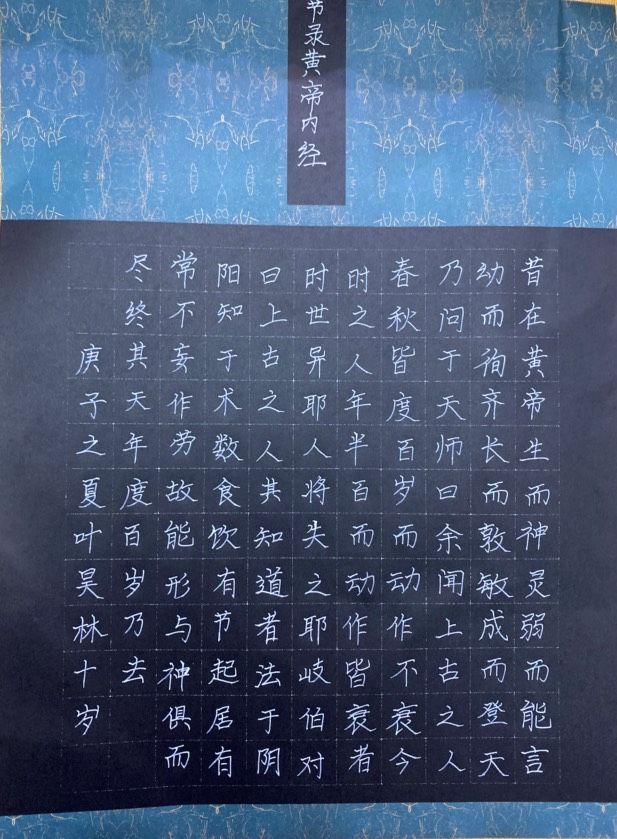 节录黄帝内经
昔在黄帝生而神灵弱而能言
幼而徇齐长而敦敏成而登天
乃问于天师曰余闻上古之人
春秋皆度百岁而动作不衰今
时之人年半百而动作皆衰者
时世异耶人将失之耶岐伯对
曰上古之人其知道者法于阴
阳知于术数食饮有节起居有
常不妄作劳故能形与神俱而
尽终其天年度百岁乃去
庚子之夏叶昊林十岁